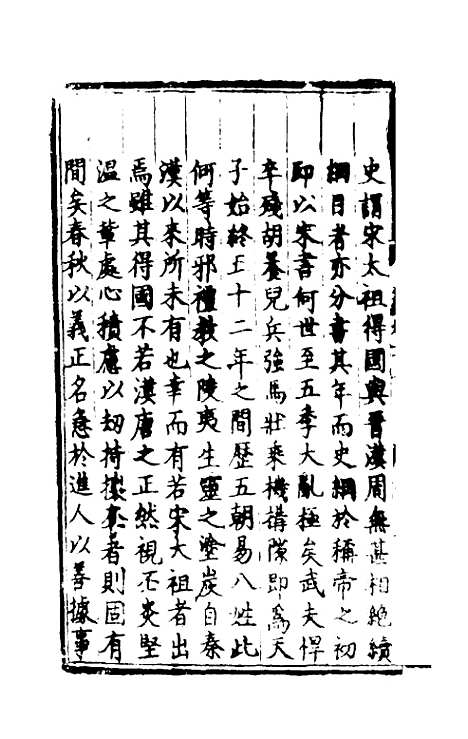 史謂宋太祖得國與晉漢周無甚相絶續
綱目者亦分書其年而史綱於稱帝之初
即以宋書何世至五季大亂極矣武夫悍
卒殘胡養兒兵強馬壯乘機搆隙即爲天
子始終五十二年之間歷五朝易八姓此
何等時邪禮教之陵夷生靈之塗炭自秦
漢以來所未有也幸而有若宋太祖者出
焉雖其得國不若漢唐之正然視丕炎堅
溫之輩處心積慮以刧持攘奪者則固有
間矣春秋以義正名急於進人以善據事